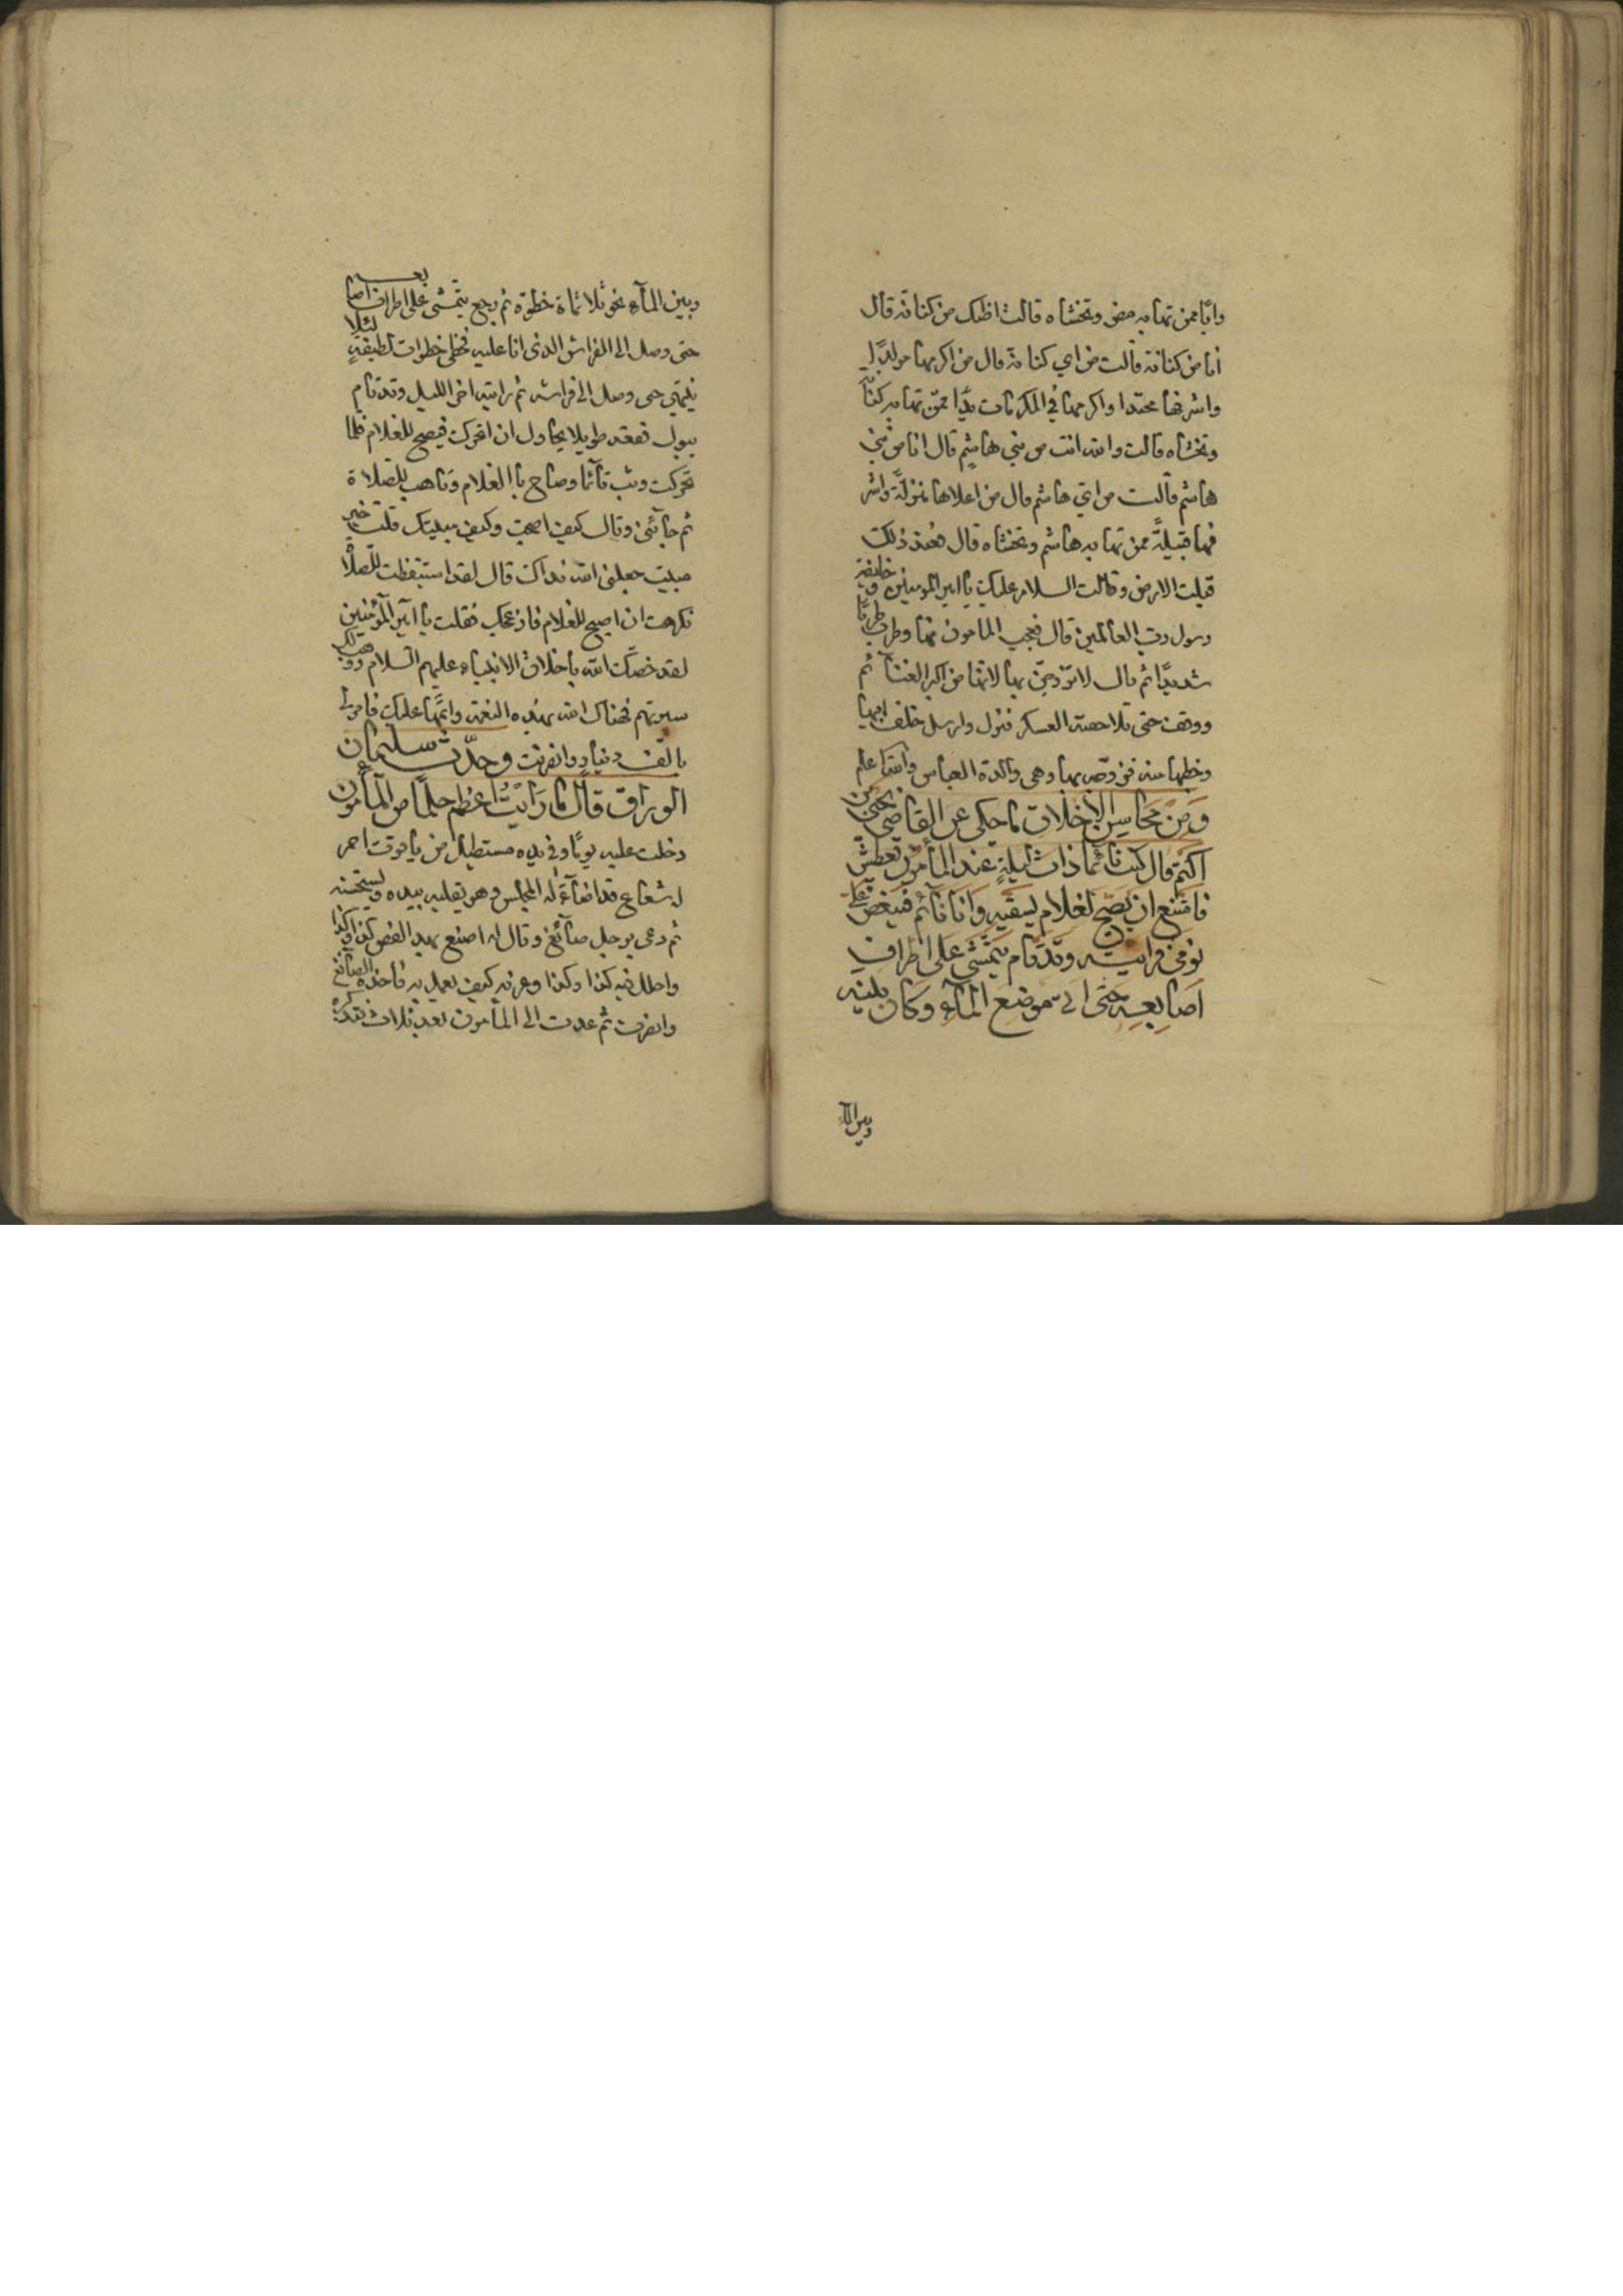 وانا ممن تهابه مضر وتخشاه قالت اظنك من كنانة قال
انا من كنانة قالت من اي كنانة قال من اكرمها مولدا
واشرفها محتدا واكرمها في المكرمات يدا ممن تهابه كنانة
وتخشاه قالت والله انت من بني هاشم قال انا من بني
هاشم قالت من اي هاشم قال من اعلاها منزلة واشر
فها قبيلة ممن تهابه هاشم وتخشاه قال فعند ذلك
قبلت الارض وقالت السلام عليك يا امير المومنين وخليفة
رسول رب العالمين قال فعجب المامون منها وطرب طربا
شديدا ثم قال لاتزوجن بها لانها من اكبر الغنائم
ووقف حتى تلاحقته العسكر فنزل وارسل خلف ابيها
وخطبها منه فزوجه بها وهي والدة العباس والله اعلم
ومن محاسن الاخلاق ما حكى عن القاضي يحيى بن
اكثم قال كنت نائما ذات ليلة عند المأمون فعطش
فامتنع ان يصيح لغلام يسقيه وانا نائم فينغص علي
نومي فرايته وقد قام يتمشى على اطراف
اصابعه حتى اتى موضع الماء وكان بينه
وبين الماء
وبين الماء نحو ثلاثمائة خطوة ثم رجع يتمشى على اطراف اصابعه
حتى وصل الى الفراش الذي انا عليه فخطى خطوات لطيفة لئلا
ينبهني حتى وصل الى فراشه ثم رايته اخر الليل وقد قام
يبول فقعد طويلا يحاول ان اتحرك فيصيح للغلام فلما
تحركت وثب قائما وصاح يا الغلام وتاهب للصلاة
ثم جائني وقال كيف اصبحت وكيف مبيتك قلت خير
مبيت جعلني الله فداك قال لقد استيقظت للصلاة
فكرهت ان اصيح للغلام فازعجك فقلت يا امير المؤمنين
لقد خصك الله باخلاق الانبياء عليهم السلام ووهب لك
سيرتهم فهناك الله بهذه النعمة واتمها عليك فامر لي
بالف دينار وانصرفت وحدث سليمان
الوراق قال ما رايت اعظم حلما من المأمون
دخلت عليه يوما وفي يده مستطيل من ياقوت احمر
له شعاع قد اضاء له المجلس وهو يقلبه بيده ويستحسنه
ثم دعى برجل صائغ وقال له اصنع بهذا الفص كذا وكذا
واحلل فيه كذا وكذا وعرفه كيف يعمل به فاخذه الصائغ
وانصرف ثم عدت الى المأمون بعد ثلاث